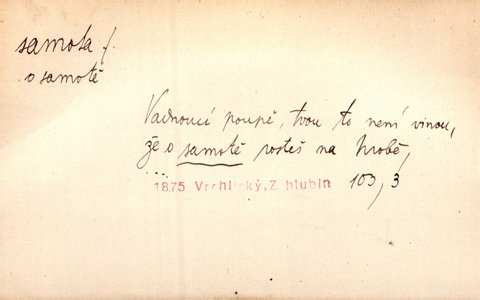 samota f.
o samotě
Vadnoucí poupě, tvou to není vinou,
že o samotě rosteš na hrobě,
... 1875 Vrchlický, Z hlubin 103, 3